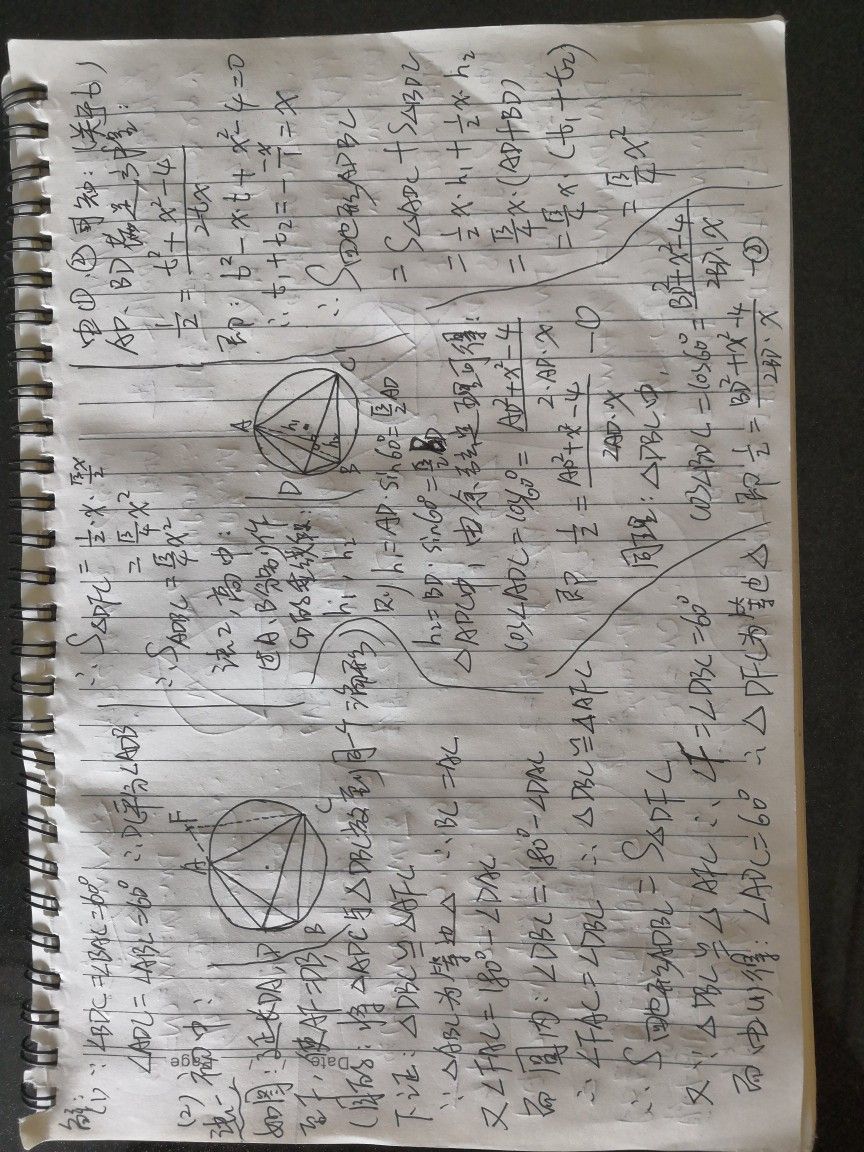 解:
(1) ∵ ∠BDC=∠BAC=60°
∠ADC=∠ABC=60° ∴ DC平分∠ADB
(2)
法一, 初中:
如图: 延长DA,
至F, 使AF=DB,
(目的: 将△ADC与△DBC放到同一个三角形)
下证: △DBC≌△AFC
∵ △ABC为等边△ ∴ BC=AC
又∠FAC=180°-∠DAC
而圆内: ∠DBC=180°-∠DAC
∴ ∠FAC=∠DBC ∴ △DBC≌△AFC
∴ S四边形ADBC=S△DFC
又∵ △DBC≌△AFC ∴ ∠F=∠DBC=60°
而由(1)得: ∠ADC=60° ∴ △DFC为等边△
A F D B C
∴ S△DFC=1/2·x·√3/2x
=√3/4x²
∴ SADBC=√3/4x²
法2, 高中:
过A、B分别作
CD的垂线段:
h₁, h₂
A D B C h₁ h₂
则 h₁=AD·sin60°=√3/2AD
h₂=BD·sin60°=√3/2BD
△ADC中, 由余弦定理可得:
cos∠ADC=cos60°=AD²+x²-4/2·AD·x
即 1/2=AD²+x²-4/2AD·x —①
同理: △DBC中,
cos∠BDC=cos60°=BD²+x²-4/2BD·x
即 1/2=BD²+x²-4/2BD·x —②
由①、②可知: (关于t)
AD、BD满足方程:
1/2=t²+x²-4/2tx
即: t²-xt+x²-4=0
∴ t₁+t₂=-(-x)/1=x
∴ S四边形ADBC
=S△ADC+S△BDC
=1/2x·h₁+1/2x·h₂
=√3/4x·(AD+BD)
=√3/4x·(t₁+t₂)
=√3/4x²
Date
Page